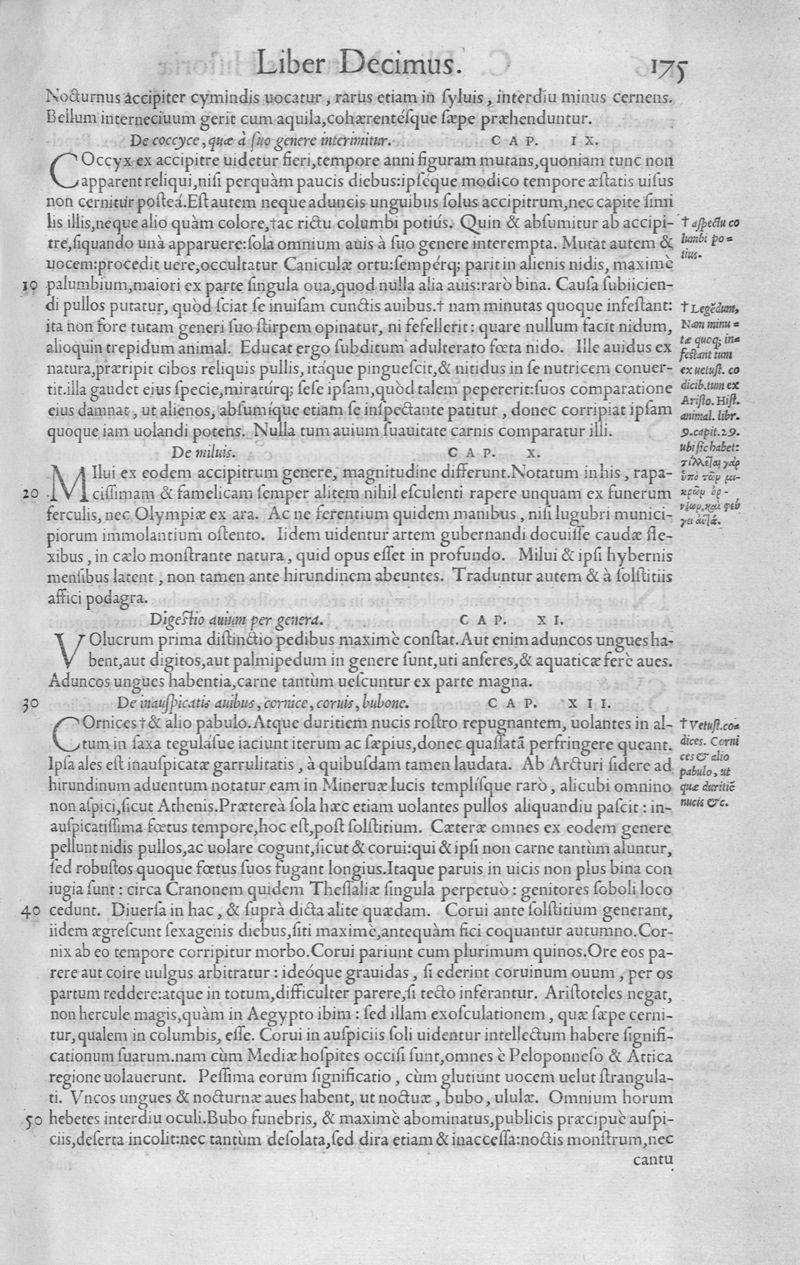 Liber Decimus. 175
Nocturnus accipiter cymindis uocatur, rarus etiam in ſyluis, interdiu minus cernens.
Bellum interneciuum gerit cum aquila,cohærentéſque ſæpe præhenduntur.
De coccyce, quæ à ſuo genere interimitur. CAP. IX.
COccyx ex accipitre uidetur fieri,tempore anni figuram mutans,quoniam tunc non
apparent reliqui,niſi perquàm paucis diebus:ipſéque modico tempore æſtatis uiſus
non cernitur poſteá.Eſt autem neque aduncis unguibus ſolus accipitrum,nec capite ſimi
lis illis,neque alio quàm colore,†ac rictu columbi potiús. Quin & abſumitur ab accipi-
tre,ſiquando unà apparuere:ſola omnium auis à ſuo genere interempta. Mutat autem &
uocem:procedit uere,occultatur Caniculæ ortu:ſempérq; parit in alienis nidis, maximè
10 palumbium,maiori ex parte ſingula oua,quod nulla alia auis:rarò bina. Cauſa ſubiicien-
di pullos putatur, quòd ſciat ſe inuiſam cunctis auibus.† nam minutas quoque infeſtant:
ita non fore tutam generi ſuo ſtirpem opinatur, ni fefellerit: quare nullum facit nidum,
alioquin trepidum animal. Educat ergo ſubditum adulterato fœta nido. Ille auidus ex
natura,præripit cibos reliquis pullis, itáque pingueſcit,& nitidus in ſe nutricem conuer-
tit.illa gaudet eius ſpecie,miratúrq; ſeſe ipſam,quòd talem pepererit:ſuos comparatione
eius damnat, ut alienos, abſumíque etiam ſe inſpectante patitur, donec corripiat ipſam
quoque iam uolandi potens. Nulla tum auium ſuauitate carnis comparatur illi.
De miluis. CAP. X.
MIlui ex eodem accipitrum genere, magnitudine differunt.Notatum in his, rapa-
20 ciſſimam & famelicam ſemper alitem nihil eſculenti rapere unquam ex funerum
ferculis, nec Olympiæ ex ara. Ac ne ferentium quidem manibus, niſi lugubri munici-
piorum immolantium oſtento. Iidem uidentur artem gubernandi docuiſſe caudæ fle-
xibus, in cælo monſtrante natura, quid opus eſſet in profundo. Milui & ipſi hybernis
menſibus latent, non tamen ante hirundinem abeuntes. Traduntur autem & à ſolſtitiis
affici podagra.
Digeſtio auium per genera. CAP. XI.
VOlucrum prima diſtinctio pedibus maximè conſtat.Aut enim aduncos ungues ha-
bent,aut digitos,aut palmipedum in genere ſunt,uti anſeres,& aquaticæ ferè aues.
Aduncos ungues habentia,carne tantùm ueſcuntur ex parte magna.
30 De inauſpicatis auibus, cornice, coruis, bubone. CAP. XII.
COrnices†& alio pabulo.Atque duritiem nucis roſtro repugnantem, uolantes in al-
tum in ſaxa teguláſue iaciunt iterum ac ſæpius,donec quaſſatã perfringere queant.
Ipſa ales eſt inauſpicatæ garrulitatis, à quibuſdam tamen laudata. Ab Arcturi ſidere ad
hirundinum aduentum notatur eam in Mineruæ lucis templíſque rarò, alicubi omnino
non aſpici,ſicut Athenis.Prætereà ſola hæc etiam uolantes pullos aliquandiu paſcit: in-
auſpicatiſſima fœtus tempore,hoc eſt,poſt ſolſtitium. Cæteræ omnes ex eodem genere
pellunt nidis pullos,ac uolare cogunt,ſicut & corui:qui & ipſi non carne tantùm aluntur,
ſed robuſtos quoque fœtus ſuos fugant longius.Itaque paruis in uicis non plus bina con
iugia ſunt: circa Cranonem quidem Theſſaliæ ſingula perpetuò: genitores ſoboli loco
40 cedunt. Diuerſa in hac, & ſuprà dicta alite quædam. Corui ante ſolſtitium generant,
iidem ægreſcunt ſexagenis diebus,ſiti maximè,antequàm fici coquantur autumno.Cor-
nix ab eo tempore corripitur morbo.Corui pariunt cum plurimum quinos.Ore eos pa-
rere aut coire uulgus arbitratur: ideóque grauidas, ſi ederint coruinum ouum, per os
partum reddere:atque in totum,difficulter parere,ſi tecto inferantur. Ariſtoteles negat,
non hercule magis,quàm in Aegypto ibim: ſed illam exoſculationem, quæ ſæpe cerni-
tur,qualem in columbis, eſſe. Corui in auſpiciis ſoli uidentur intellectum habere ſignifi-
cationum ſuarum.nam cùm Mediæ hoſpites occiſi ſunt,omnes è Peloponneſo & Attica
regione uolauerunt. Peſſima eorum ſignificatio, cùm glutiunt uocem uelut ſtrangula-
ti. Vncos ungues & nocturnæ aues habent, ut noctuæ, bubo, ululæ. Omnium horum
50 hebetes interdiu oculi.Bubo funebris, & maximè abominatus,publicis præcipuè auſpi-
ciis,deſerta incolit:nec tantùm deſolata,ſed dira etiam & inacceſſa:noctis monſtrum,nec
cantu
† aſpectu co
lumbi po=
tius.
† Legẽdum,
Nam minu=
tæ quoq; in=
feſtant tum
ex uetuſt. co
dicib.tum ex
Ariſto. Hiſt.
animal. libr.
9.capit.29.
ubi ſic habet:
† Vetuſt.co=
dices. Corni
ces & alio
pabulo, ut
quæ duritiẽ
nucis &c.